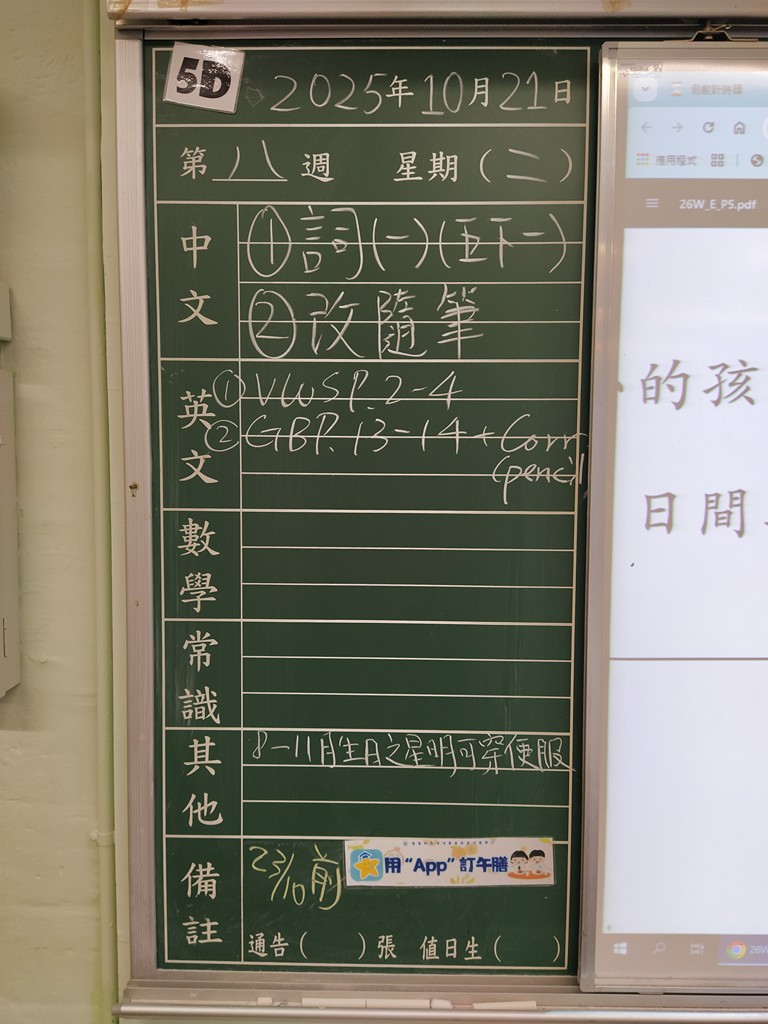 5D
2025年10月21日
第八週 星期(二)
中文
①詞(一)(五下一)
②改隨筆
英文
①VWSP.2-4
②GBP.13-14+Corr
(pencil
數學
常識
其他
8-11月生日之星明可穿便服
備註
23/10前
用“App”訂午膳
通告( )張 值日生( )
倒數計時器
應用程式
26W_E_P5.pdf
的孩
日間